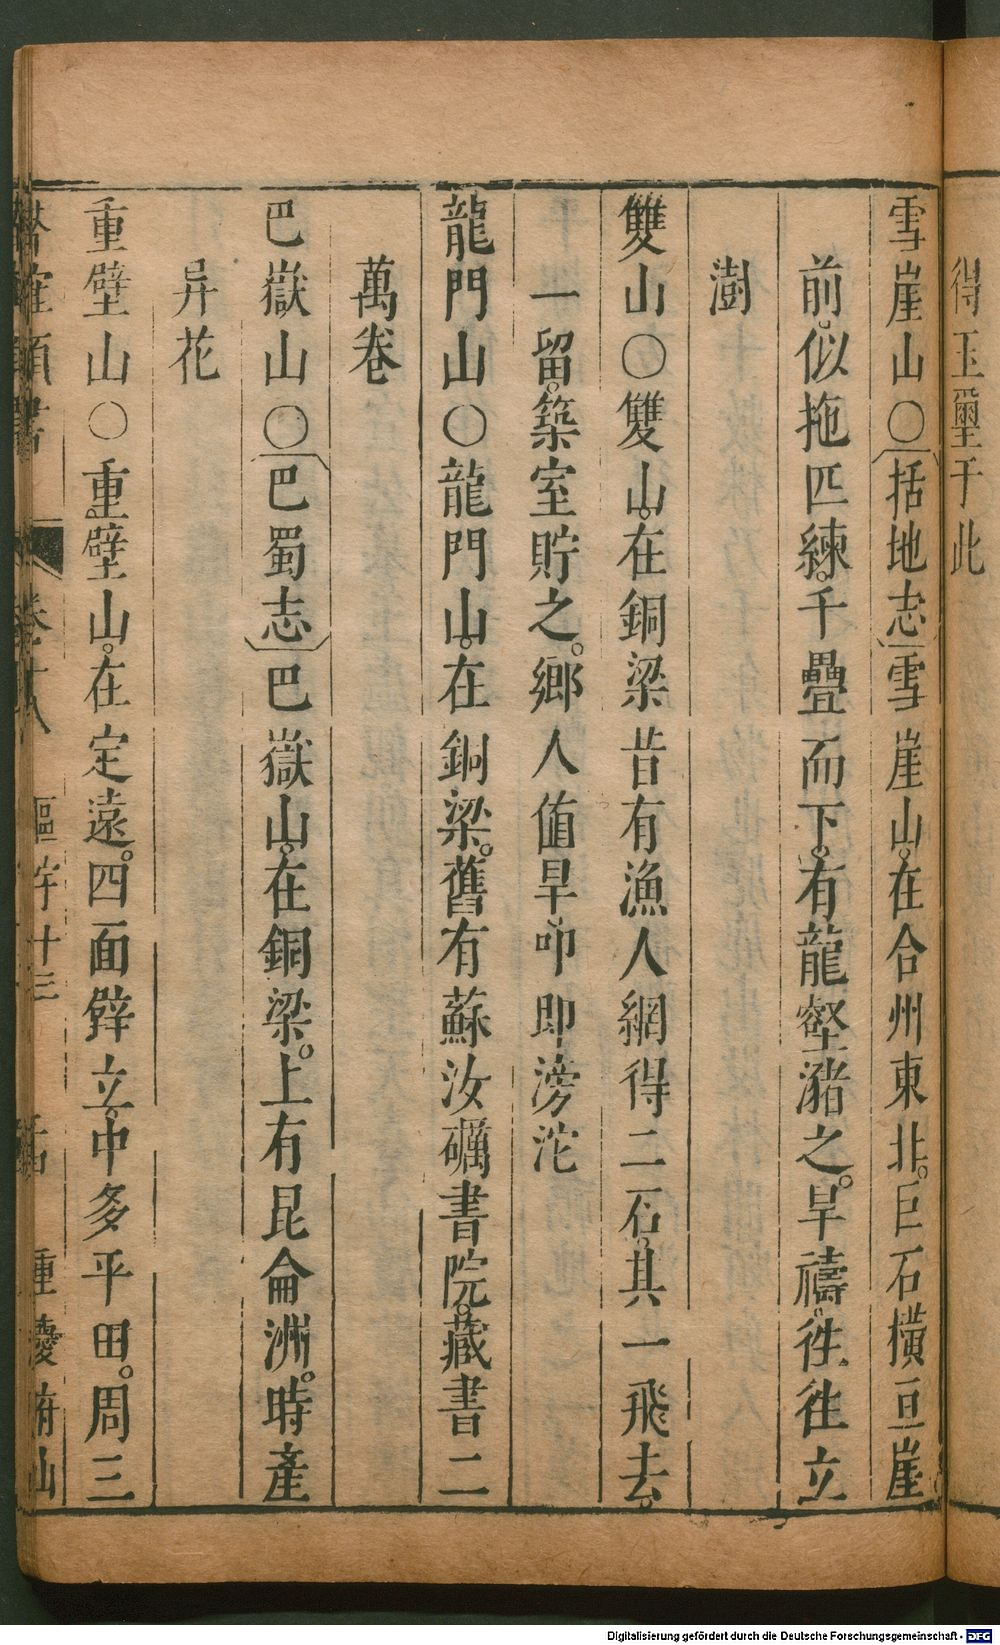 得玉璽于此
雪崖山〇括地志雪崖山在合州東北巨石橫亘崖
前似拖匹練千疊而下有龍壑瀦之旱禱徃徃立
澍
雙山〇雙山在銅梁昔有漁人網得二石其一飛去
一留築室貯之鄉人值旱叩即滂沱
龍門山〇龍門山在銅梁舊有蘇汝礪書院藏書二
萬卷
巴嶽山〇巴蜀志巴嶽山在銅梁上有昆侖洲時產
异花
重壁山〇重壁山在定遠四面聳立中多平田周三
卷十八
重慶府山
Digitalisierung gefördert durch die Deutsche Forschungsgemeinschaft - DFG